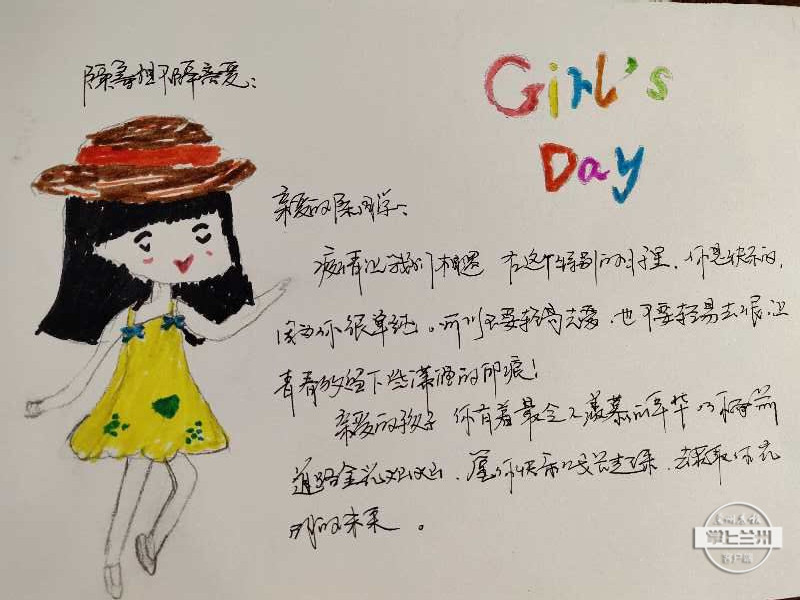 隔离但不隔亲爱：
Girl's
Day
亲爱的陈同学：
疫情让我们相遇 在这个特别的日子里，你是快乐的，
因为你很单纯。所以不要轻易去爱，也不要轻易去恨，让
青春放留下些潇洒的印痕！
亲爱的孩子 你有着最令人羡慕的年华 你
道路金光灿灿，愿你快乐 成长 去 取你
明的未来。
掌上兰州
客户端